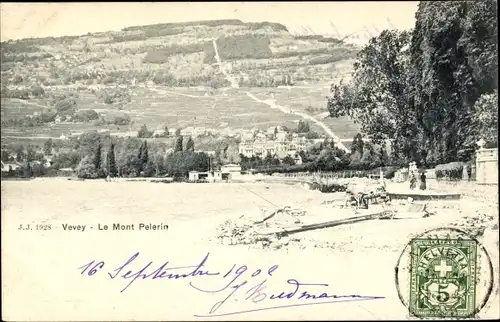 J.J. 1928 - Vevey - Le Mont Pelerin
16 Septembre 1902
HELVETIA
5